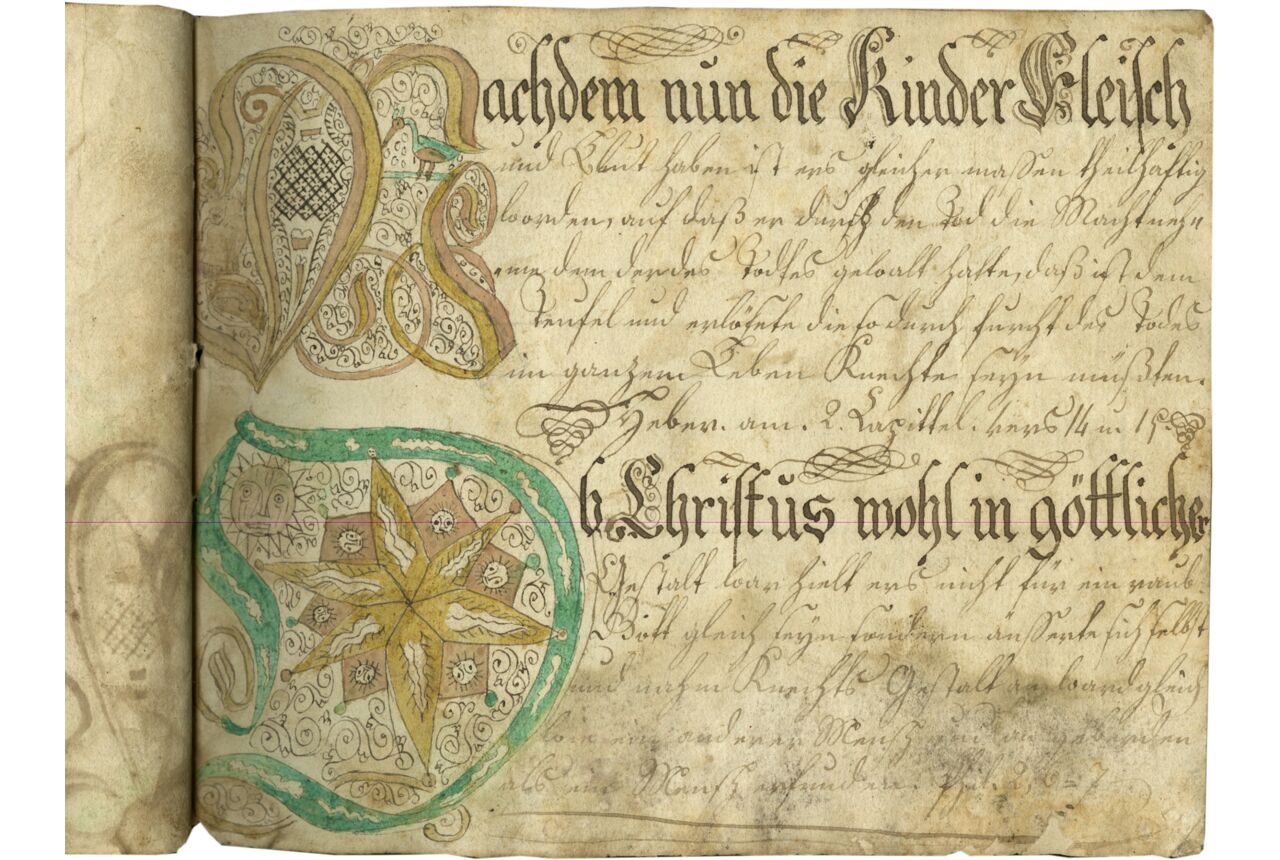 Nachdem nun die Kinder Fleisch
und Blut haben ist ers gleicher massen theilhaftig
worden, auf daß er durch den Tod die Macht neh=
eme dem der des Todtes gewalt hatte, daß ist dem
Teufel und erlösete die so durch furcht des Todes
im ganzem Leben Knechte seyn müßten.
Heber. am. 2. Capittel. vers 14 u 15.
Ob Christus wohl in göttlicher
Gestalt war hielt ers nicht für ein raub
Gott gleich seyn sondern äusserte sich selbst
und nahm Knechts Gestalt an, ward gleich
wie ein anderer Mensch und an geberden
als ein Mensch erfunden. Phil. 2, 6 = 7